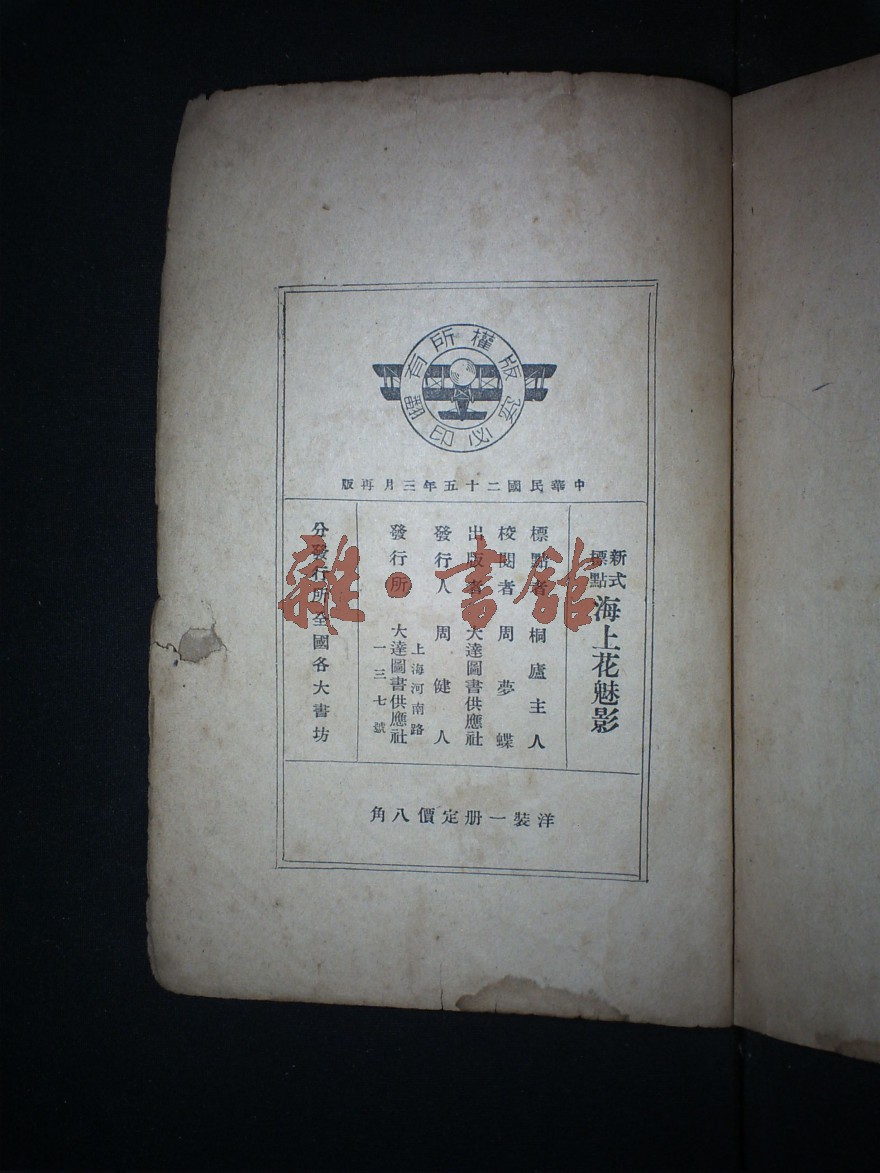 版權所有
翻印必究
中華民國二十五年三月再版
新式標點
海上花魅影
標點者 桐廬主人
校閱者 周夢蝶
出版者 大達圖書供應社
發行人 周健人
發行所 大達圖書供應社
上海河南路
一三七號
分發行所全國各大書坊
洋裝一册定價八角
雜·書館